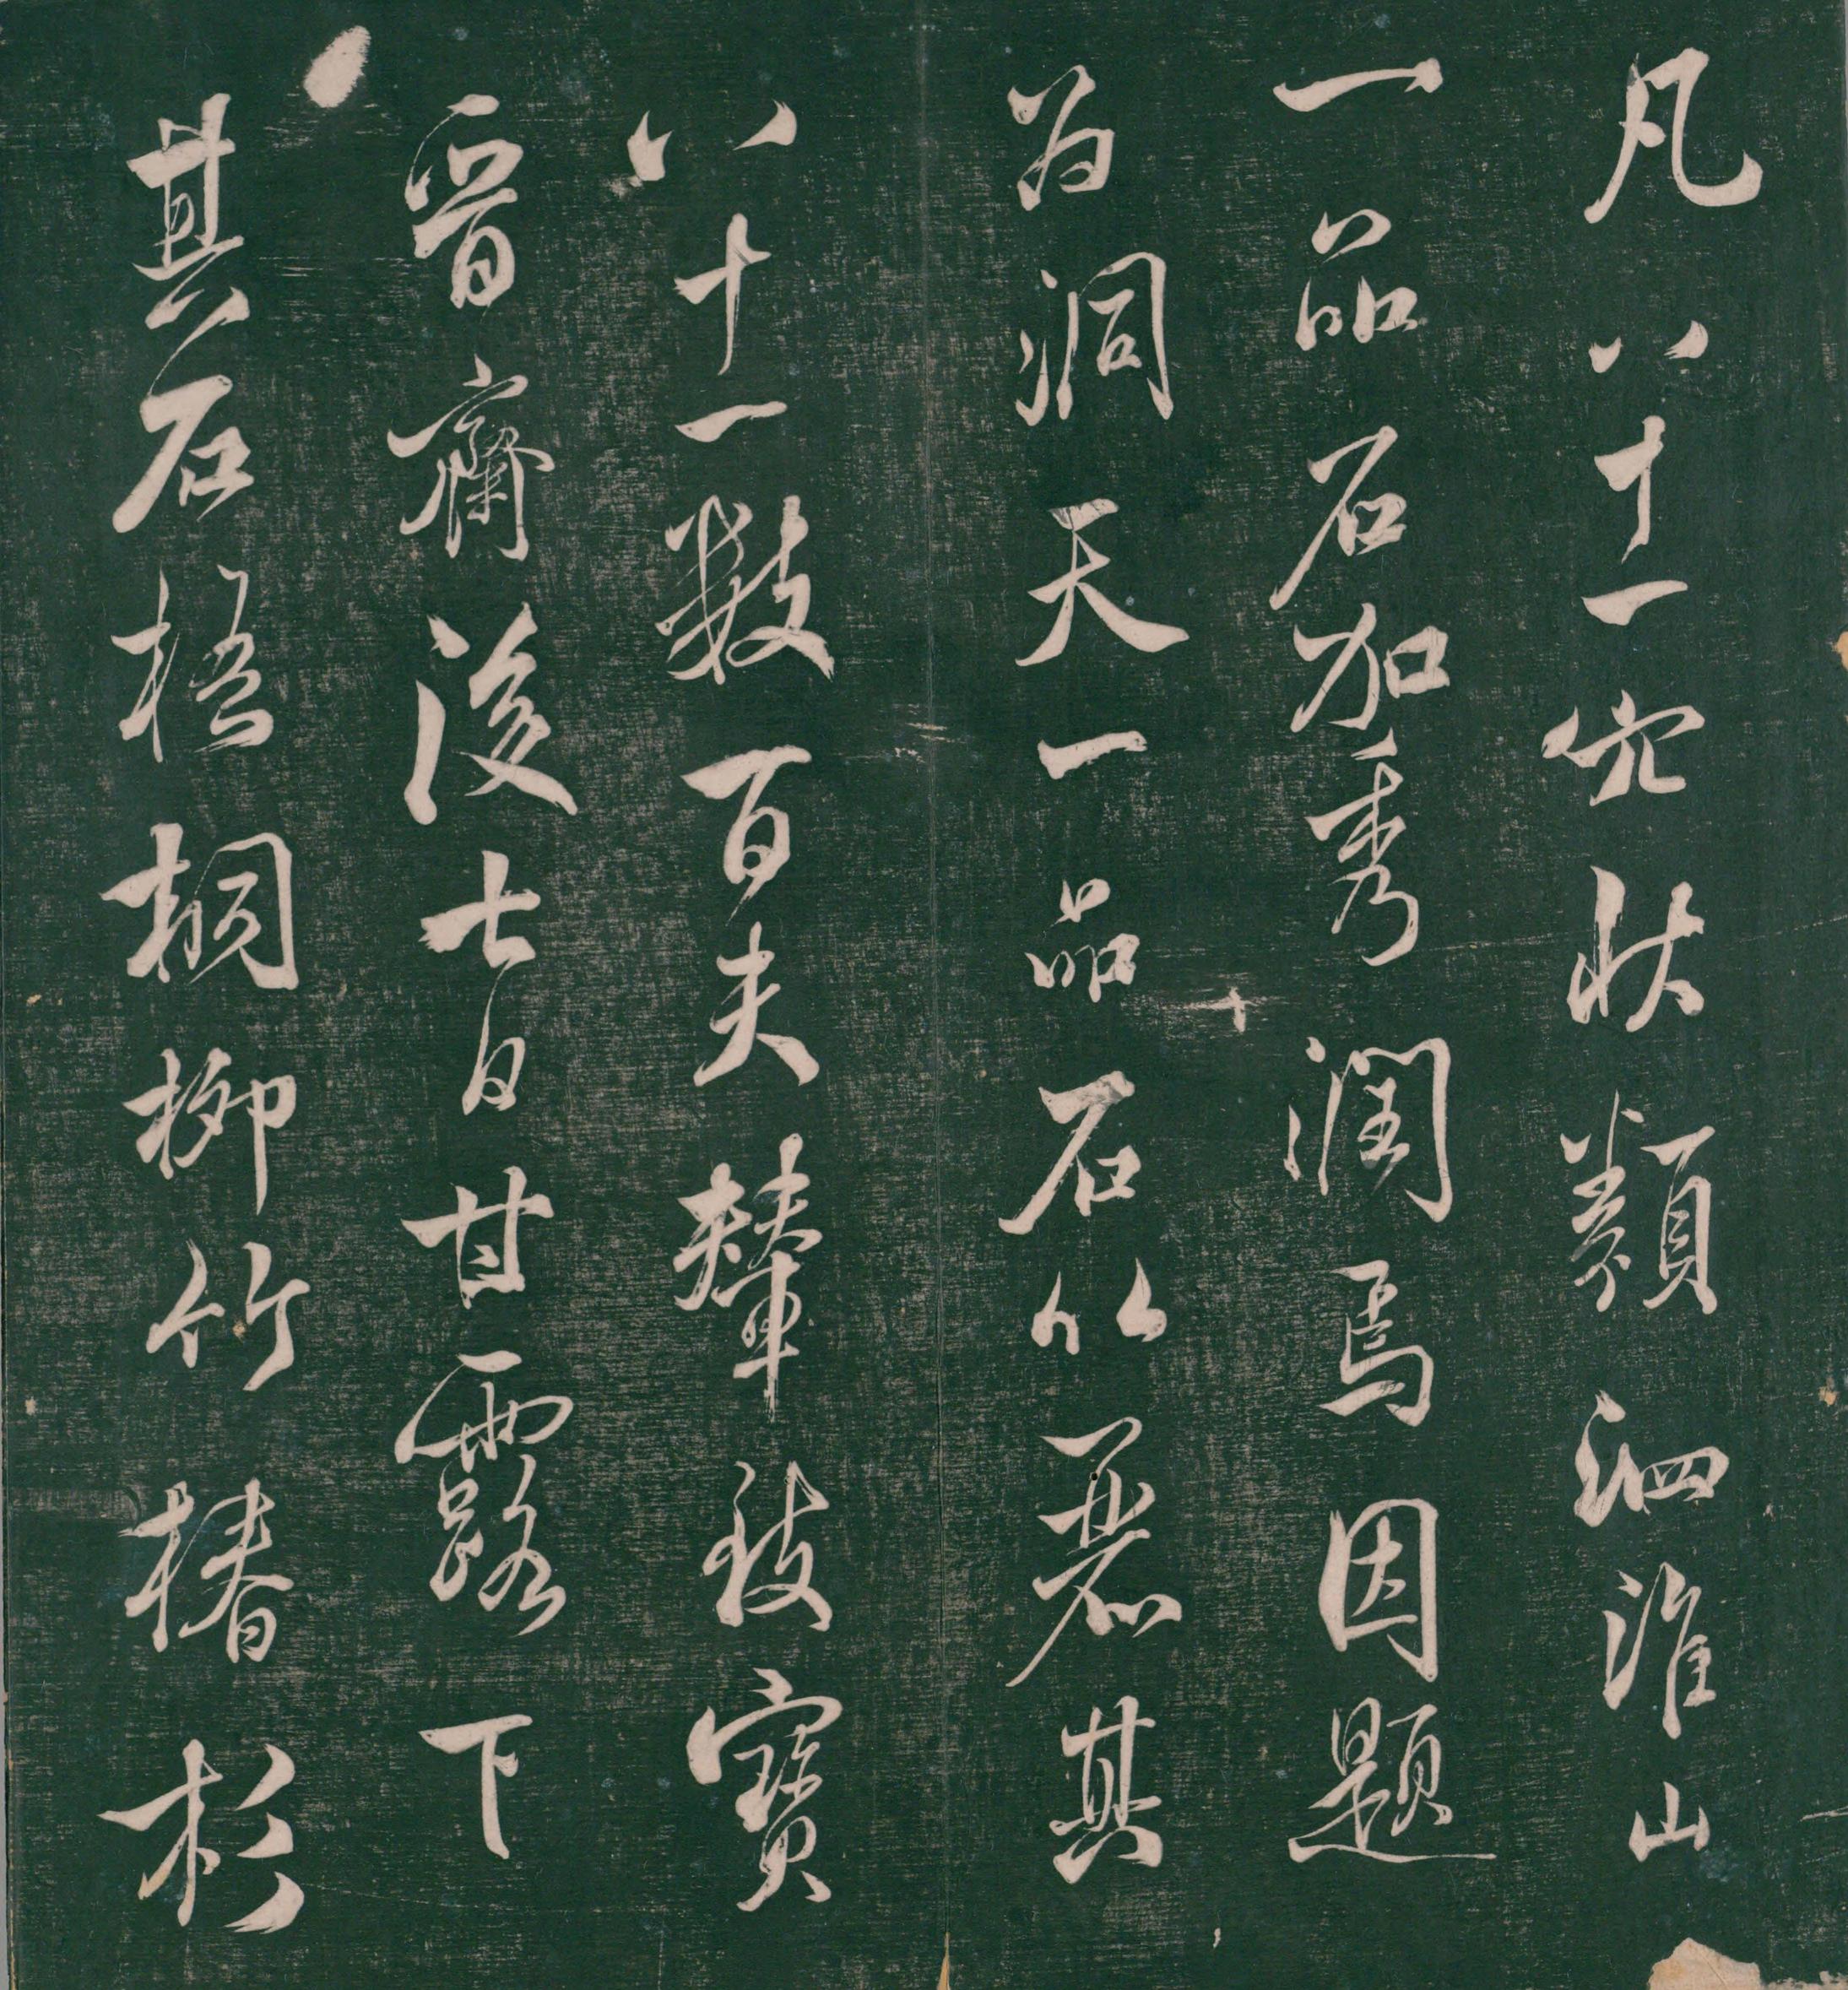 凡八十一穴狀類泗淮山
一品石加秀潤焉因題
為洞天一品石以麗其
八十一數百夫輦致寶
晉齋後七日甘露下
其石梧桐柳竹椿杉